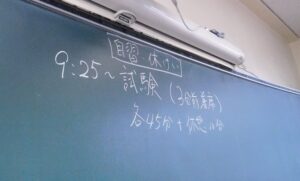 自習・休けい
9:25～試験(3分前着席)
各45分+休憩10分